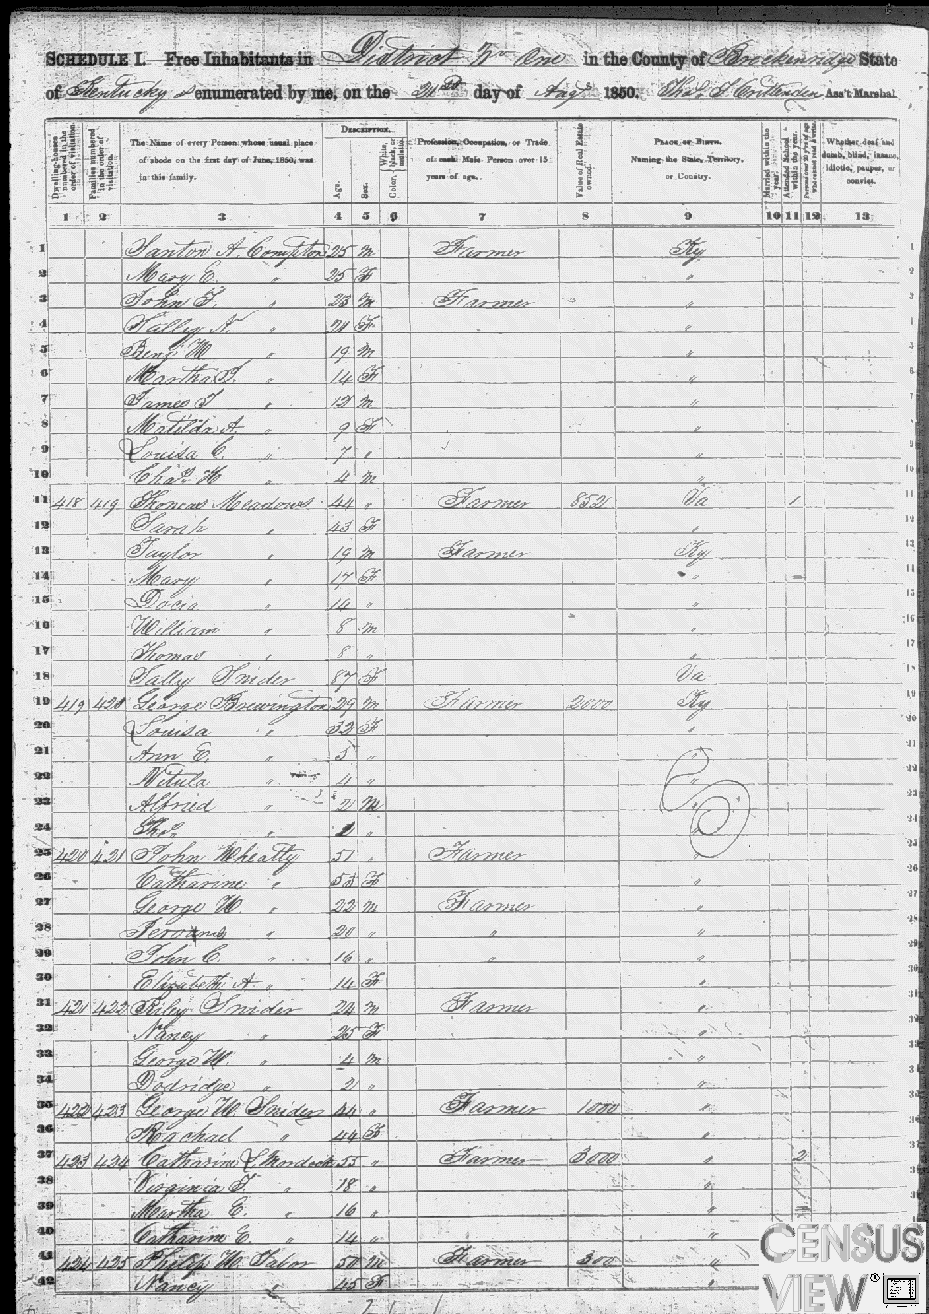 SCHEDULE I. Free Inhabitants in District No One in the County of Breckenridge State
of Kentucky enumerated by me, on the 21st day of Augt 1850. Thos J Crittenden Ass't Marshal
Dwelling-houses numbered in the order of visitation. Families numbered in the order of visitation. The Name of every Person whose usual place of abode on the first day of June, 1850, was in this family. Description. Age. Sex. Color, White, black, or mulatto. Profession, Occupation, or Trade of each Male Person over 15 years of age. Value of Real Estate owned. Place of Birth. Naming the State, Territory, or Country. Married within the year. Attended School within the year. Persons over 20 y'rs of age who cannot read & write. Whether deaf and dumb, blind, insane, idiotic, pauper, or convict.
1 2 3 4 5 6 7 8 9 10 11 12 13
1 Santon A Compton 25 m Farmer Ky 1
2 Mary E. " 25 F " 2
3 John T. " 23 m Farmer " 3
4 Salley A. " 21 F " 4
5 Benj W " 19 m " 5
6 Martha J. " 14 F " 6
7 James T " 12 m " 7
8 Matilda A. " 9 F " 8
9 Louisa C. " 7 " " 9
10 Chas H " 4 m " 10
11 418 419 Thomas Meadows 44 " Farmer 852 Va 1 11
12 Sarah " 43 F " 12
13 Taylor " 19 m Farmer Ky 13
14 Mary " 17 F " 14
15 Docia " 14 " " 15
16 William " 8 m " 16
17 Thomas " 8 " " 17
18 Sally Snider 87 F Va 18
19 419 420 George Brewington 29 m Farmer 2000 Ky 19
20 Louisa " 32 F " 20
21 Ann E. " 5 " " 21
22 Nitula " 4 " " 22
23 Alfried " 2 m " 23
24 Thos " " " 24
25 420 421 John Wheatly 51 " Farmer " 25
26 Catharine " F " 26
27 George W. " 22 m Farmer " 27
28 " 20 " " " 28
29 John C. " 16 " " " 29
30 Elizabeth A. " 14 F " 30
31 421 422 Riley Snider 24 m Farmer " 31
32 Nancy " 25 F "
33 George W. " 4 m "
34 Dodridge " 2 " "
35 422 423 George W Snider 44 " Farmer 1000 "
36 Rachael " 44 F "
37 423 424 Catharine Murdock 55 " Farmer 3000 " 2
38 Virginia F. " 18 " "
39 Martha E. " 16 " "
40 Catharine E. " 14 " "
41 424 425 Philip W Tabor 50 m Farmer 300 "
42 Nancy " 45 F "
CENSUS
VIEW®